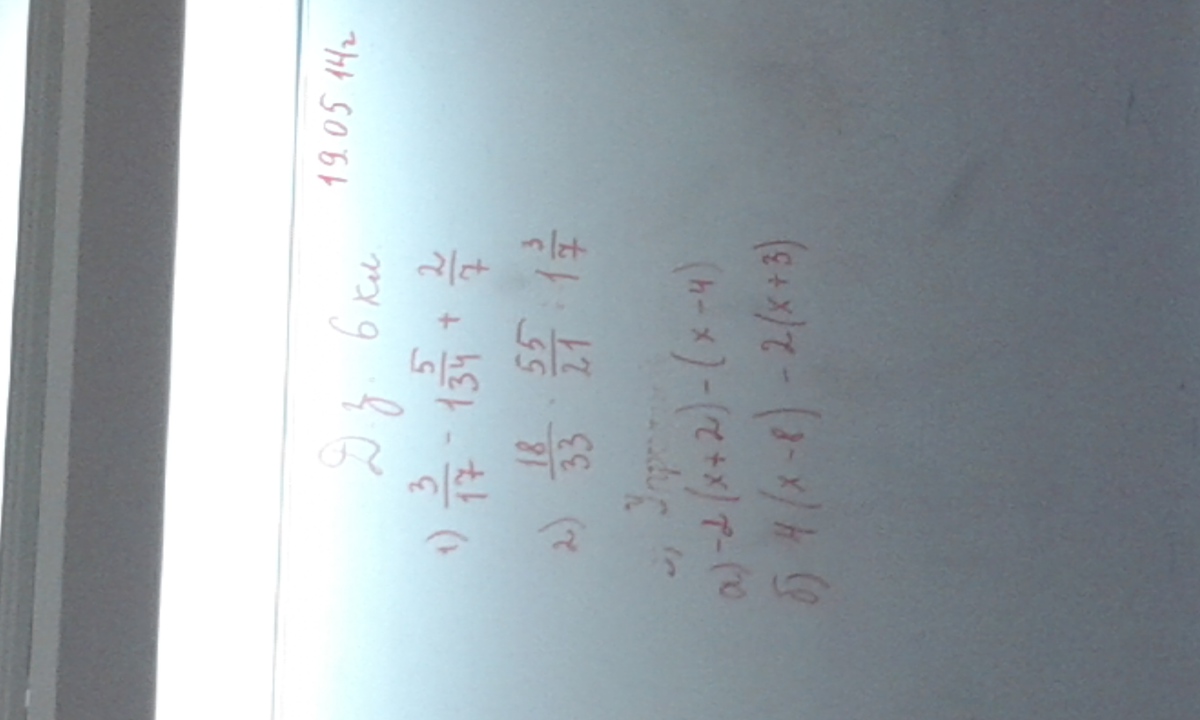 19.05 14г
Д.з. 6 кл
1) 3/17 - 1 5/34 + 2/7
2) 18/33 · 55/21 : 1 3/7
а) -2(x+2)-(x-4)
б) 4(x-8) - 2(x+3)